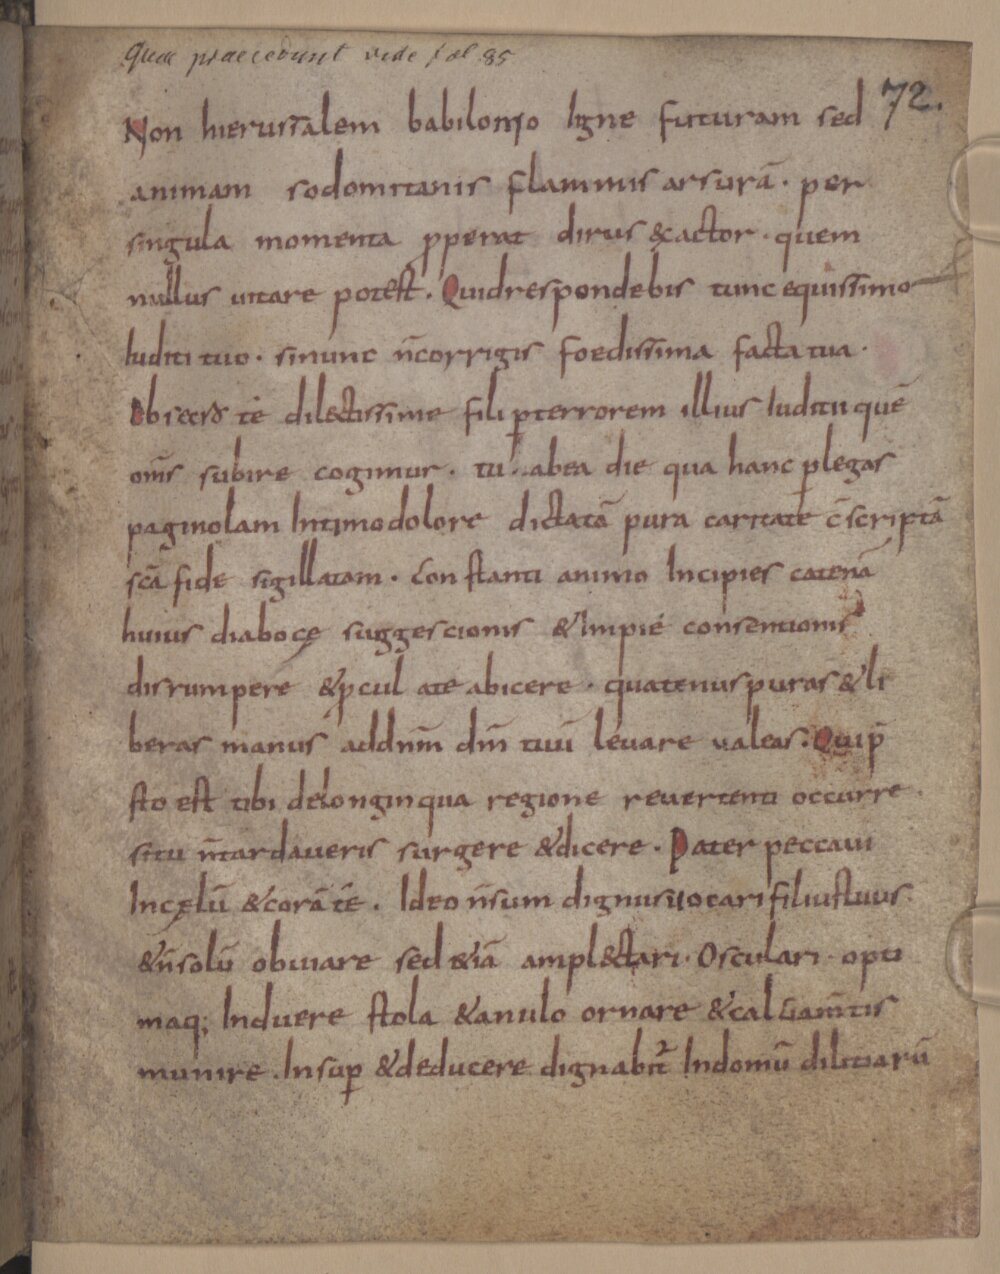 Quae praecedunt vide fol. 85
72.
Non hierusalem babilonio igne futuram sed
animam sodomitanis flammis arsurā · per
singula momenta ꝓperat dirus &actor · quem
nullus uitare potest . Quidrespondebis tunc equissimo
Iudici tuo · sinunc n̄corrigis foedissima facta tua ·
te dilectissime fili ꝑterrorem illius Iudicii quē
om̄s subire cogimur . tu abea die qua hanc ꝑlegas
paginolam Intimodolore dictatā pura caritate c̄scriptā
sc̄a fide sigillatam . Constanti animo Incipies catenā
huius diabocę suggescionis &Impie consentionis
disrumpere &ꝓcul ate abicere . quatenuspuras&li
beras manus addn̄m dm̄ tuū leuare ualeas . Quip̄
sto est tibi delonginqua regione reuertenti occurre .
situ n̄tardaueris surgere &dicere . Pater peccaui
Incęlū &corā te . Ideo n̄sum dignusuocari filiustuus .
&n̄solū obuiare sed &iā ampl&ctari · Osculari · opti
maq; Induere stola &anulo ornare &calciam̄tis
munire . Insuꝑ &deducere dignabit᷑ Indomū diliciarū